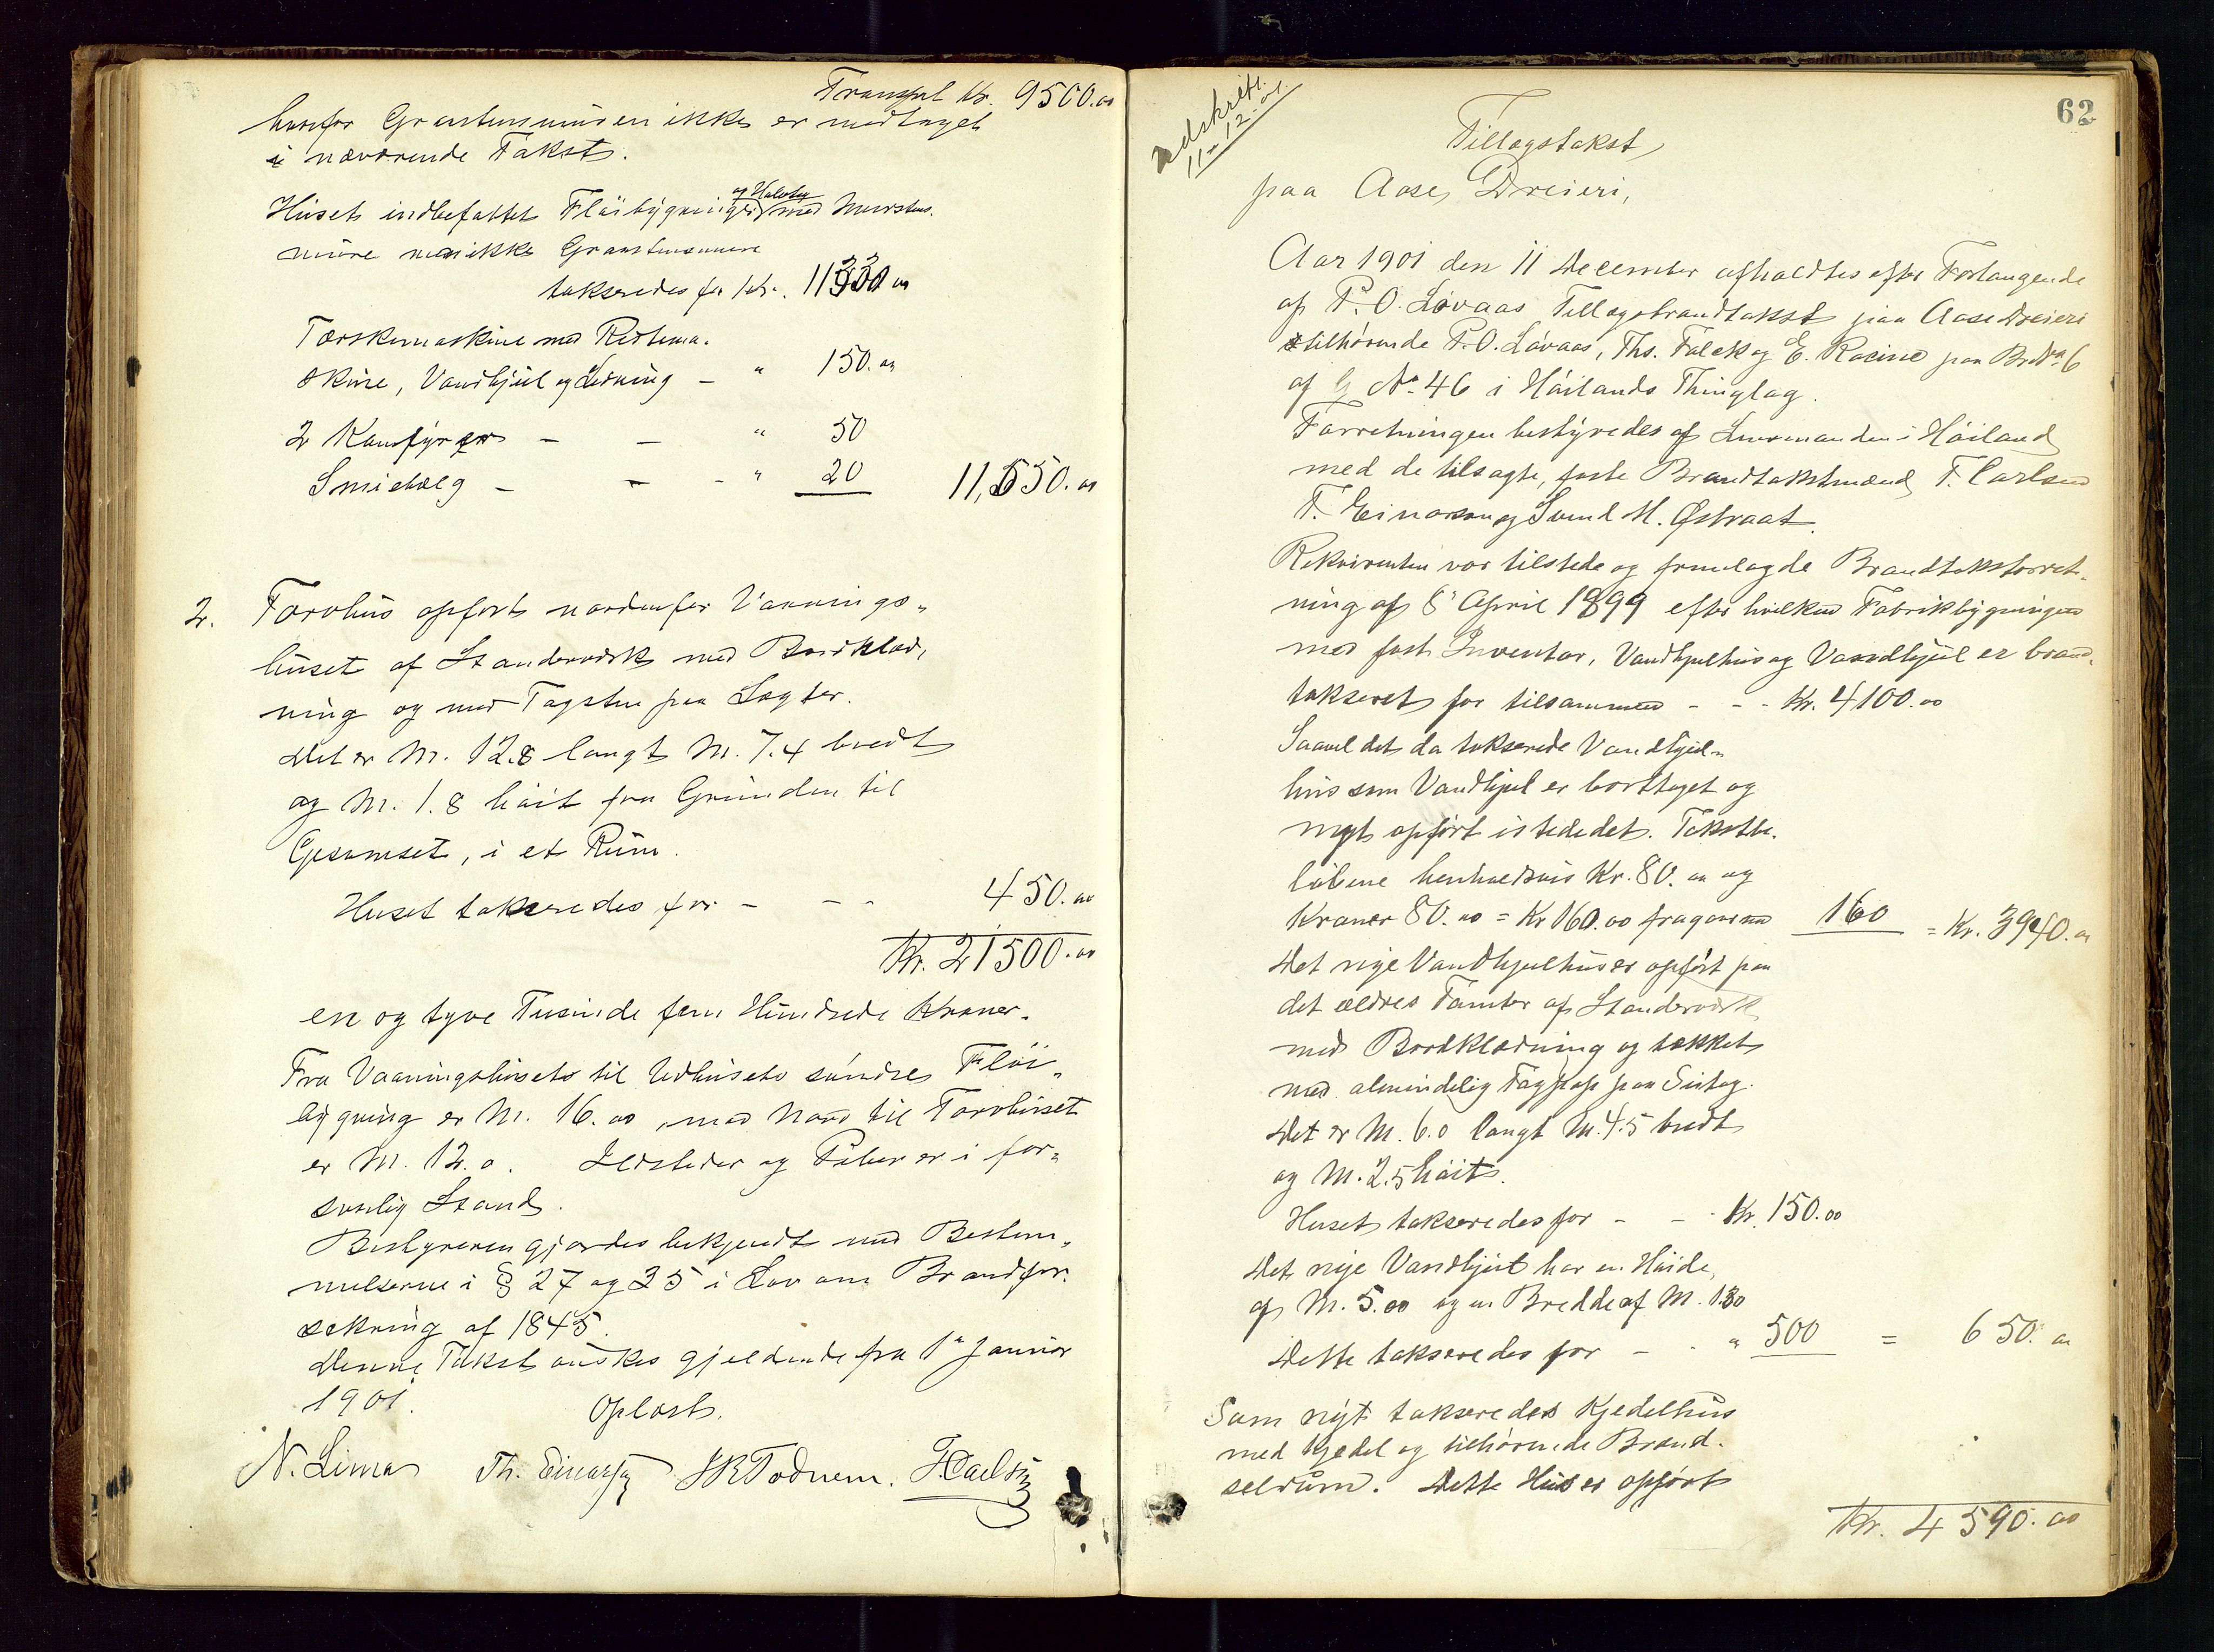 Transpt Kr. 9500.00
hvorfor Graastensmuren ikke er medtaget
i nærværende Takst.
Huset indbefattet Fløibygninger og Halvtag med Murstens-
mure men ikke Graastensmure
takseredes for Kr. 11330 00
Tærskemaskine med Ristema-
skine, Vandhjul og Ledning - " 150.00
2 Komfyrer - - " 50
Smiebælg - - - " 20 11,550.00
2. Torvhus opført nordenfor Vaanings-
huset af Standerværk med Bordklæd-
ning og med Tagsten paa Lægter.
Det er M. 12.8 langt M. 7.4 bredt
og M. 1.8 høit fra Grunden til
Gesimset, i et Rum.
Huset takseredes for - - - 450.00
Kr. 21500.00
en og tyve Tusinde fem Hundrede Kroner.
Fra Vaaningshuset til Udhusets søndre Fløi-
bygning er M. 16.00, mod Nord til Torvhuset
er M. 12.0. Ildsteder og Piber er i for-
svarlig Stand.
Bestyreren gjordes bekjendt med Bestem-
melserne i § 27 og 35 i Lov om Brandfor-
sikring af 1845.
Denne Takst ønskes gjeldende fra 1ste Januar
1901.
Oplæst.
N. Lima Th. Einarsen Todnem. T. Carlsen
62
Udskrift.
11-12-01.
Tillægstakst
paa Aase Dreieri,
Aar 1901 den 11 December afholdtes efter Forlangende
af P. O. Løvaas Tillægsbrandtakst paa Aase Dreieri
tilhørende P. O. Løvaas, Ths. Falck og E. Racine paa Br No 6
af G No 46 i Høilands Thinglag.
Forretningen bestyredes af Lensmanden i Høiland
med de tilsagte, faste Brandtakstmænd T. Carlsen
T. Einarsen og Svend M. Østraat.
Rekvirenten var tilstede og fremlagde Brandtakstforret-
ning af 6 April 1899 efter hvilken Fabrikbygningen
med fast Inventar, Vandhjulhus og Vandhjul er brand-
takseret for tilsammen - - - Kr. 4100.00
Saavel det da takserede Vandhjul-
hus som Vandhjul er borttaget og
nyt opført istedet. Takstbe-
løbene henholdsvis Kr. 80.00 og
Kroner 80.00 = Kr 160.00 fragaar 160 = Kr. 3940.00
Det nye Vandhjulhus er opført paa
det ældres Tomter af Standerværk
med Bordklædning og tækket
med almindelig Tagpap paa Sutag.
Det er M. 6.0 langt M. 4.5 bredt
og M. 2.5 høit.
Huset takseredes for - - - Kr. 150.00
Det nye Vandhjul har en Høide
af M. 5.00 og en Bredde af M. 1.30
Dette takseredes for - - " 500 = 650.00
Som nyt takseredes Kjedelhus
med Kjedel og tilhørende Brænd-
selrum. Dette Hus er opført
Kr. 4590.00